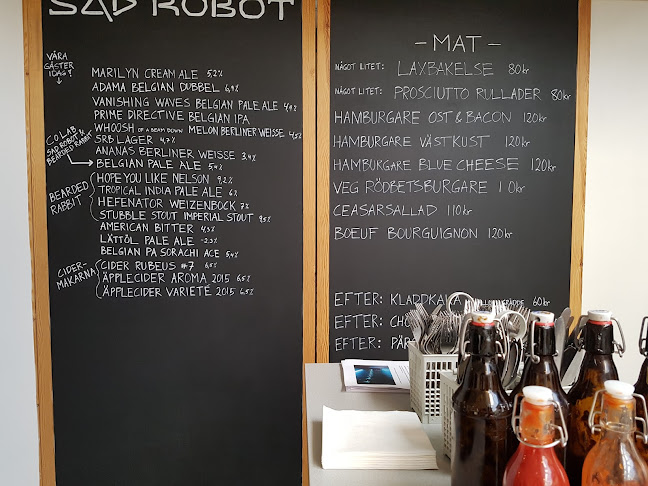 SAD ROBOT
VÅRA
GÄSTER
IDAG!
MARILYN CREAM ALE 5,2%
ADAMA BELGIAN DUBBEL 6,9%
VANISHING WAVES BELGIAN PALE ALE 4,9%
PRIME DIRECTIVE BELGIAN IPA
WHOOSH OF A BEAM DOWN MELON BERLINER WEISSE 4,5%
CO.LAB
SAD ROBOT &
BEARDED RABBIT
SRB LAGER 4,7%
ANANAS BERLINER WEISSE 3,4%
BELGIAN PALE ALE 5,4%
BEARDED
RABBIT
HOPE YOU LIKE NELSON 9,2%
TROPICAL INDIA PALE ALE 6%
HEFENATOR WEIZENBOCK 7%
STUBBLE STOUT IMPERIAL STOUT 9,5%
AMERICAN BITTER 4,3%
LÄTTÖL PALE ALE -2,3%
BELGIAN PA SORACHI ACE 5,4%
CIDER-
MAKARNA
CIDER RUBEUS #7 6,5%
ÄPPLECIDER AROMA 2015 6,5%
ÄPPLECIDER VARIETÉ 2015 6,5%
- MAT -
NÅGOT LITET: LAXBAKELSE 80kr
NÅGOT LITET: PROSCIUTTO RULLADER 80kr
HAMBURGARE OST & BACON 120kr
HAMBURGARE VÄSTKUST 120kr
HAMBURGARE BLUE CHEESE 120kr
VEG RÖDBETSBURGARE 1 0kr
CEASARSALLAD 110kr
BOEUF BOURGUIGNON 120kr
EFTER: KLADDKAKA 60kr
EFTER:
EFTER: